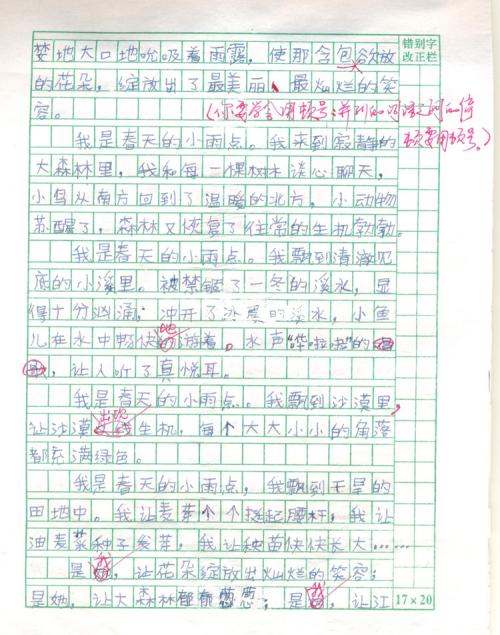 错别字
改正栏
婪地大口地吮吸着雨露，使那含包欲放
的花朵，绽放出了最美丽、最灿烂的笑
容。
(你要学会用顿号：并列的词语之间的停顿要用顿号。)
我是春天的小雨点。我来到寂静的
大森林里，我和每一棵树木谈心聊天，
小鸟从南方回到了温暖的北方，小动物
苏醒了，森林又恢复了往常的生机勃勃。
我是春天的小雨点。我飘到清澈见
底的小溪里。被禁锢了一冬的溪水，显
得十分汹涌；冲开了冰冻的溪水，小鱼
儿在水中畅快地游着。水声“哗啦啦”的
，让人听了真悦耳。
我是春天的小雨点。我飘到沙漠里，
让沙漠出现生机，每个大大小小的角落
都充满绿色。
我是春天的小雨点，我飘到干旱的
田地中。我让麦芽个个挺起腰杆，我让
油麦菜种子发芽，我让秧苗快快长大……
是我，让花朵绽放出灿烂的笑容；
是她，让大森林郁郁葱葱；是我，让江
17×20